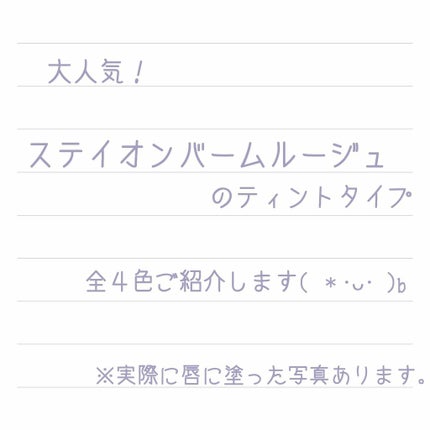 大人気！
ステイオンバームルージュ
のティントタイプ
全４色ご紹介します( ＊･ᴗ･ )b
※実際に唇に塗った写真あります。